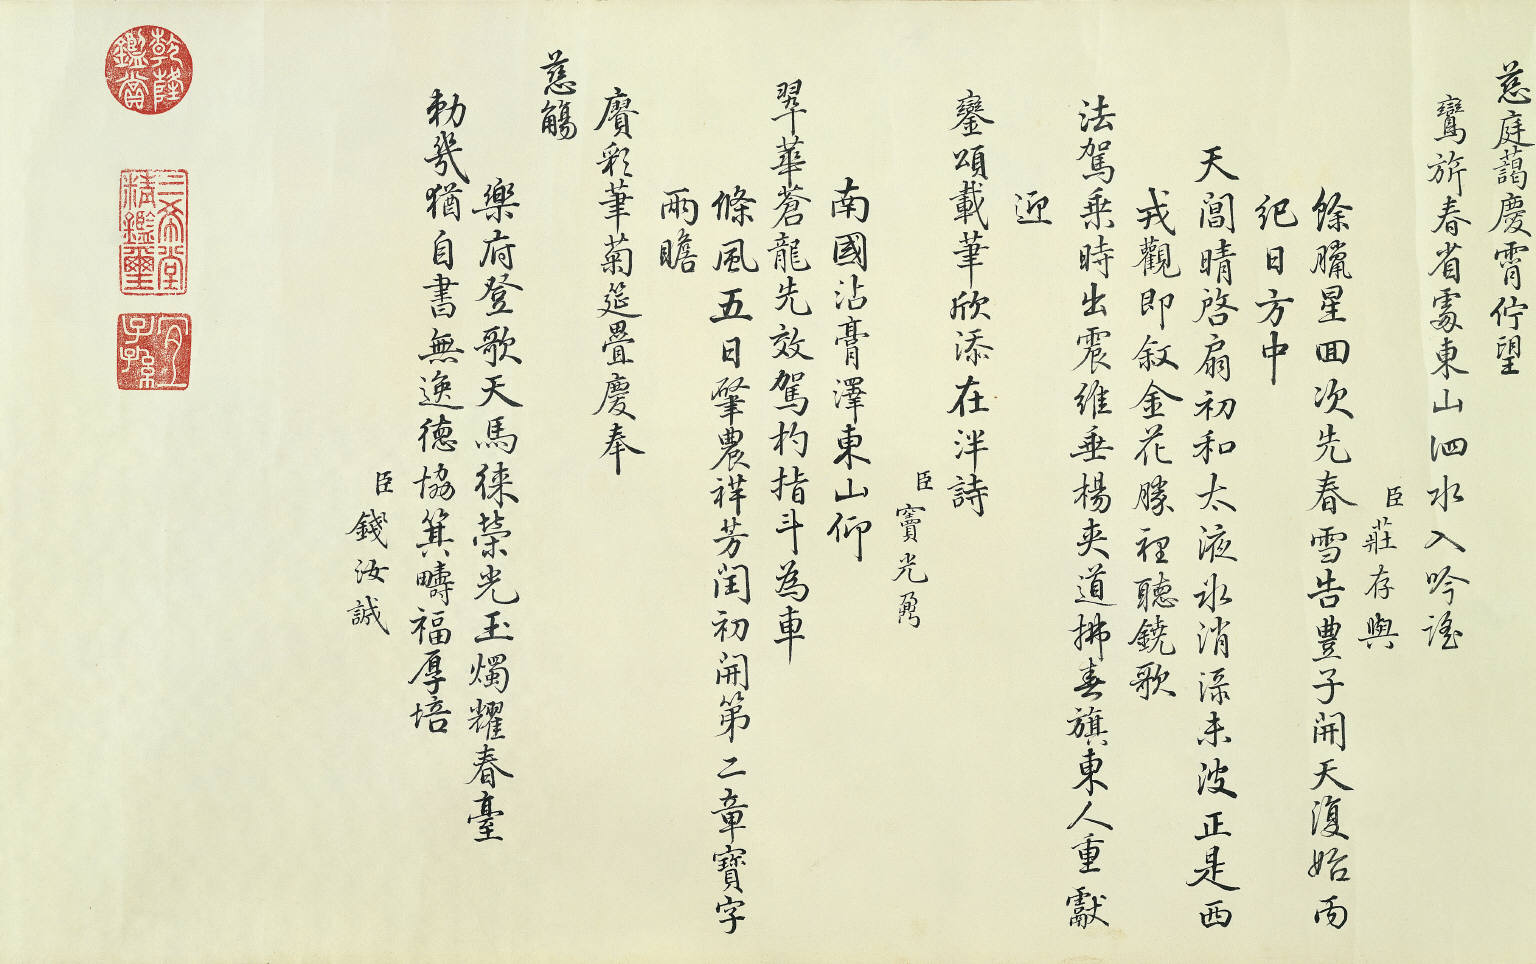 慈庭藹慶霄佇望
鸞旂春省處東山泗水入吟謠
臣莊存與
餘臘星回次先春雪告豐子開天復始丙
紀日方中
天閶晴啓扇初和太液冰消渌未波正是西
戎觀即叙金花勝裡聽鐃歌
法駕乗時出震維垂楊夾道拂春旗東人重獻
迎
鑾頌載筆欣添在泮詩
臣竇光鼐
南國沾膏澤東山仰
翠華蒼龍先效駕杓指斗為車
條風五日肇農祥芳閏初開第二章寶字
兩瞻
賡彩筆菊筵疊慶奉
慈觴
樂府登歌天馬徠榮光玉燭耀春臺
勅幾猶自書無逸德協箕疇福厚培
臣錢汝誠
乾隆鑑賞
三希堂精鑑璽
宜子孫